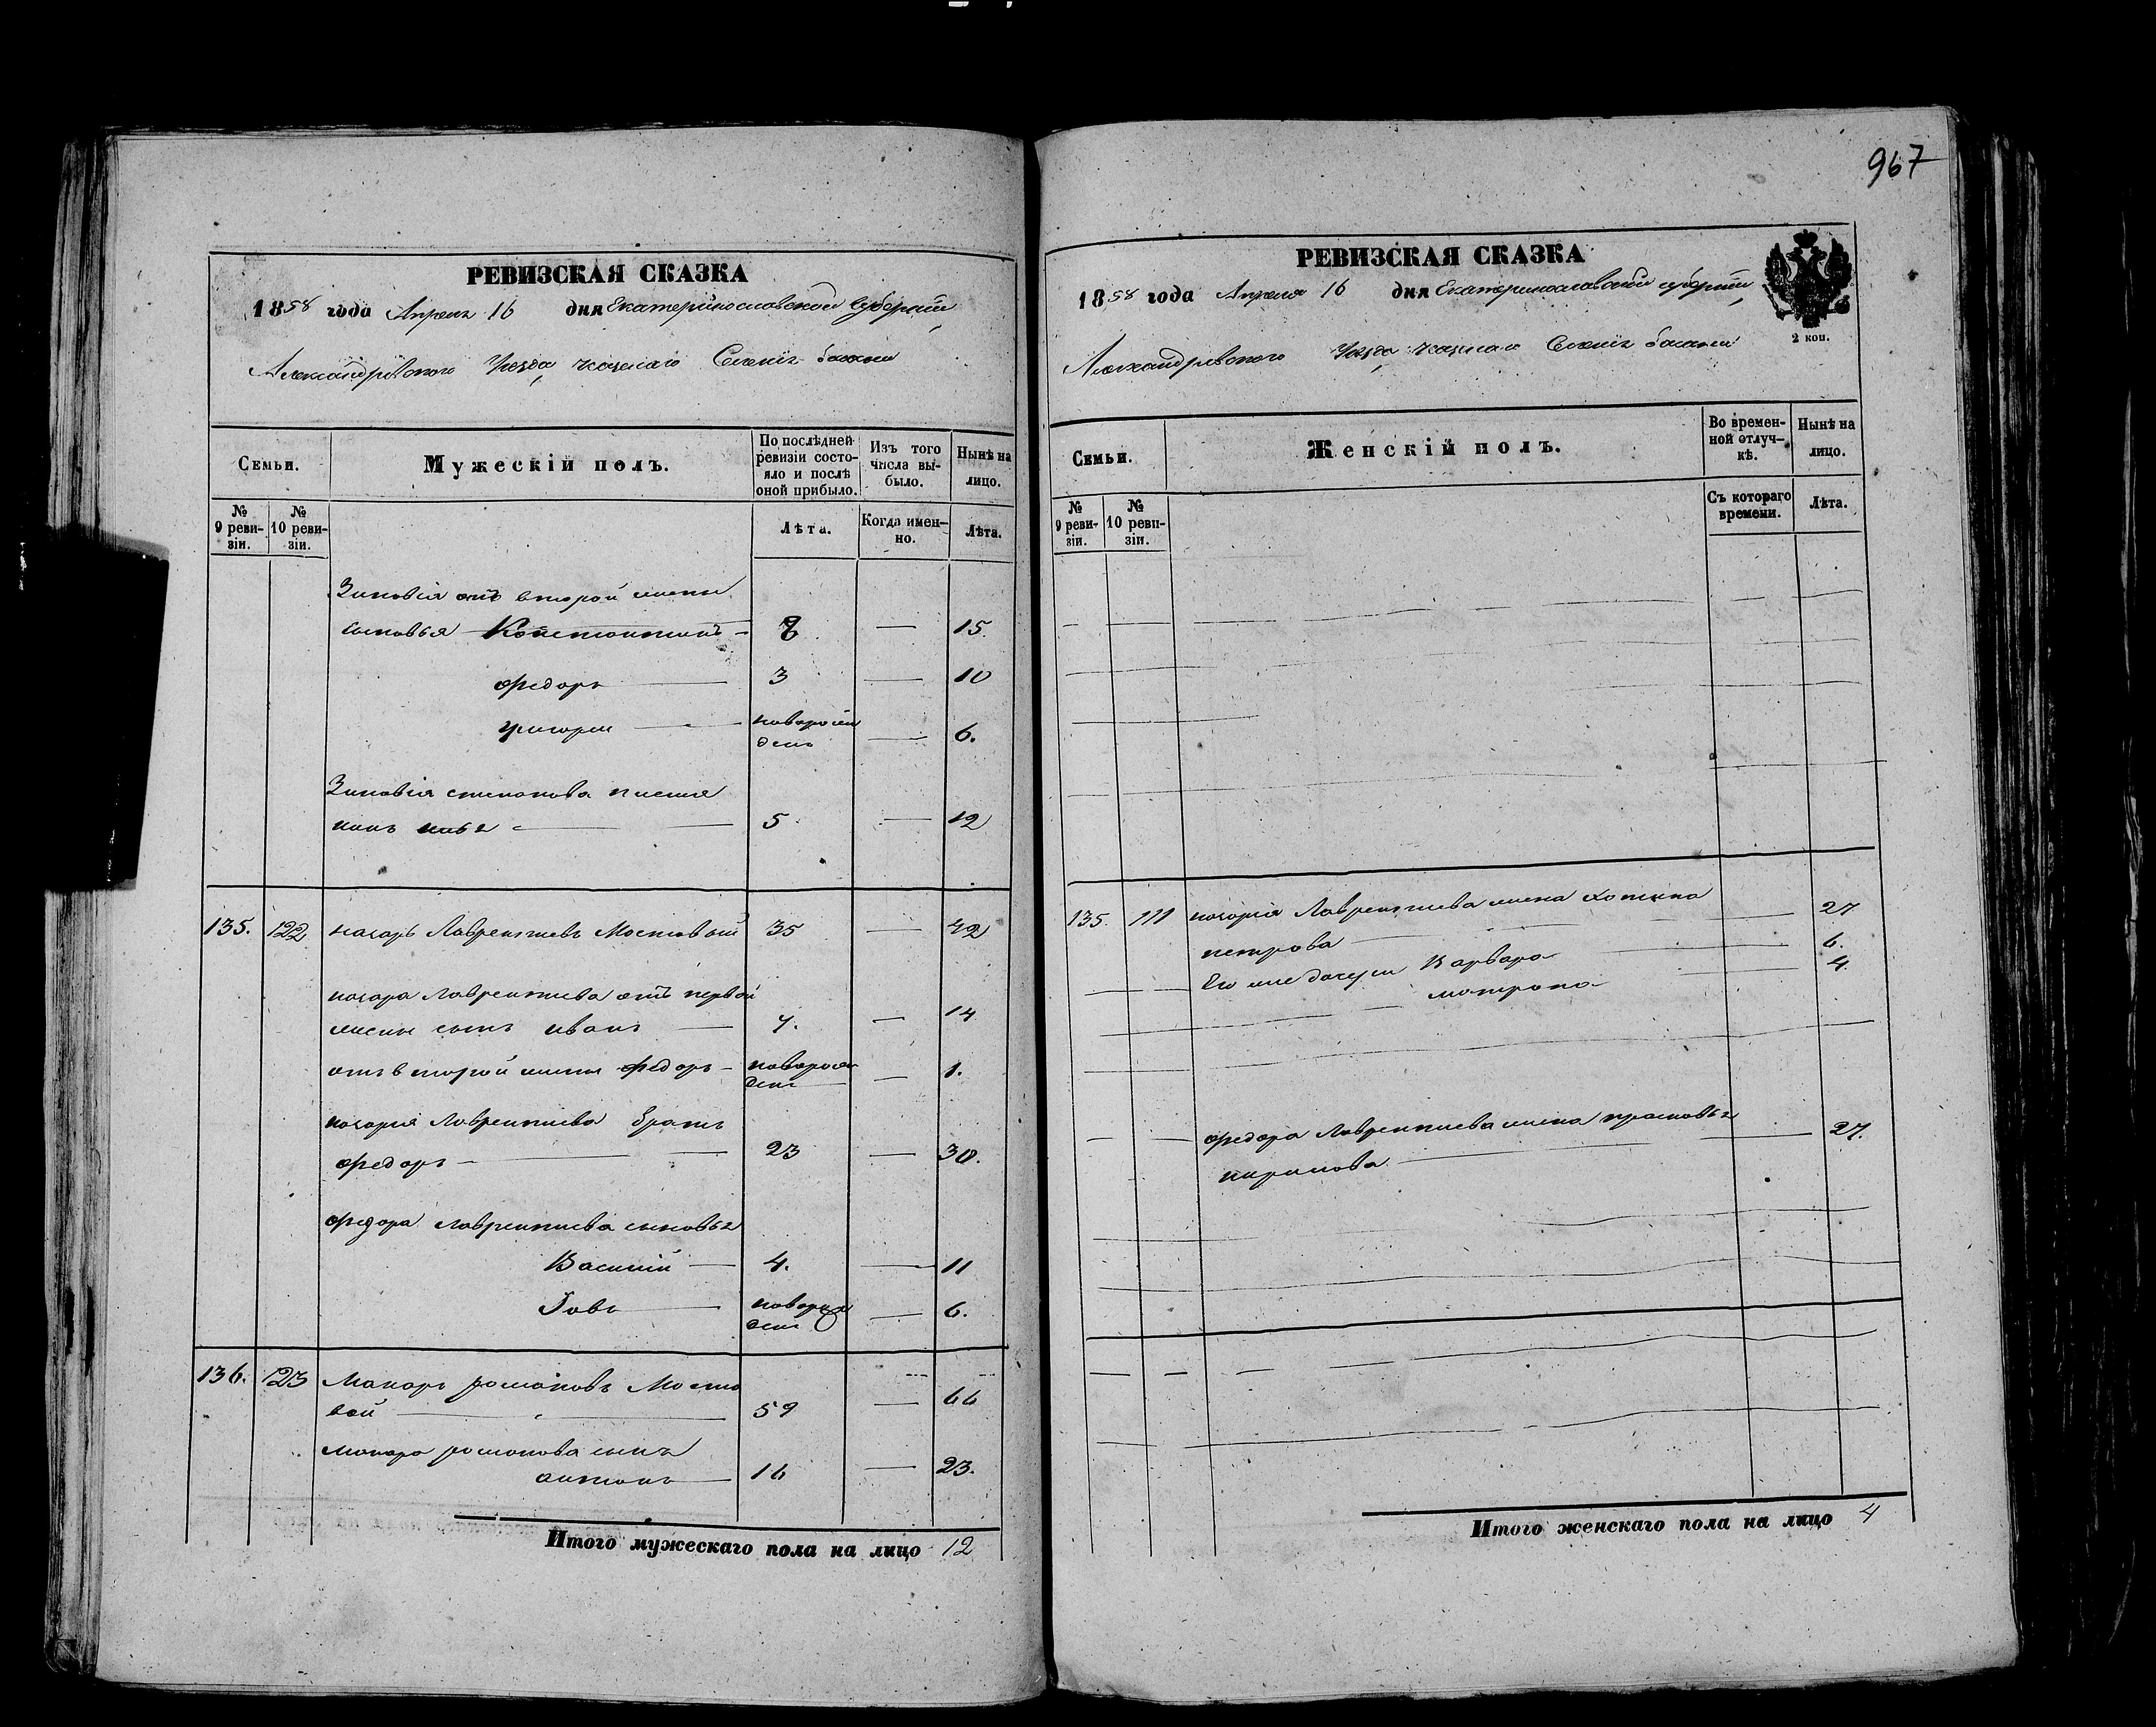 РЕВИЗСКАЯ СКАЗКА
1858 года Апреля 16 дня Екатеринославской губернии
Александровского Уезда казенаго Селенія басани
Семьи.
Мужескій полъ.
По послѣдней ревизіи состояло и послѣ оной прибыло.
Изъ того числа выбыло.
Нынѣ на лицо.
№ 9 ревизіи.
№ 10 ревизіи.
Лѣта.
Когда именно.
Лѣта.
Зиновія отъ второй жены
сыновья Константинъ — 8 — 15.
Федоръ — 3 — 10
григорій — новорожденъ — 6.
Зиновія степанова племя
никъ — 5 — 12
135. 122 назаръ Лаврентиевъ Мостовый 35 — 42
назара Лаврентиева отъ первой
жены сынъ иванъ — 7. — 14
отъ второй жены Федоръ — новорожденъ — 1.
назарія Лаврентиева братъ
Федоръ — 23 — 30.
Федора Лаврентиева сыновья
Василій — 4. — 11
Іовъ — новорожденъ — 6.
136. 123 Макаръ романовъ Мосто
вой — 59 — 66
макара романова сынъ
антонъ — 16 — 23.
Итого мужескаго пола на лицо 12
967
РЕВИЗСКАЯ СКАЗКА
1858 года Апреля 16 дня Екатеринославской губерніи
Александровского Уезда казенаго Селенія басани
2 коп.
Семьи.
Женскій полъ.
Во временной отлучкѣ.
Нынѣ на лицо.
№ 9 ревизіи.
№ 10 ревизіи.
Съ котораго времени.
Лѣта.
135. 111 назарія Лаврентиева жена
петрова — 27
Его же дочери Варвара — 6.
матрона — 4.
Федора Лаврентиева жена прасковья
— 27.
Итого женскаго пола на лицо 4